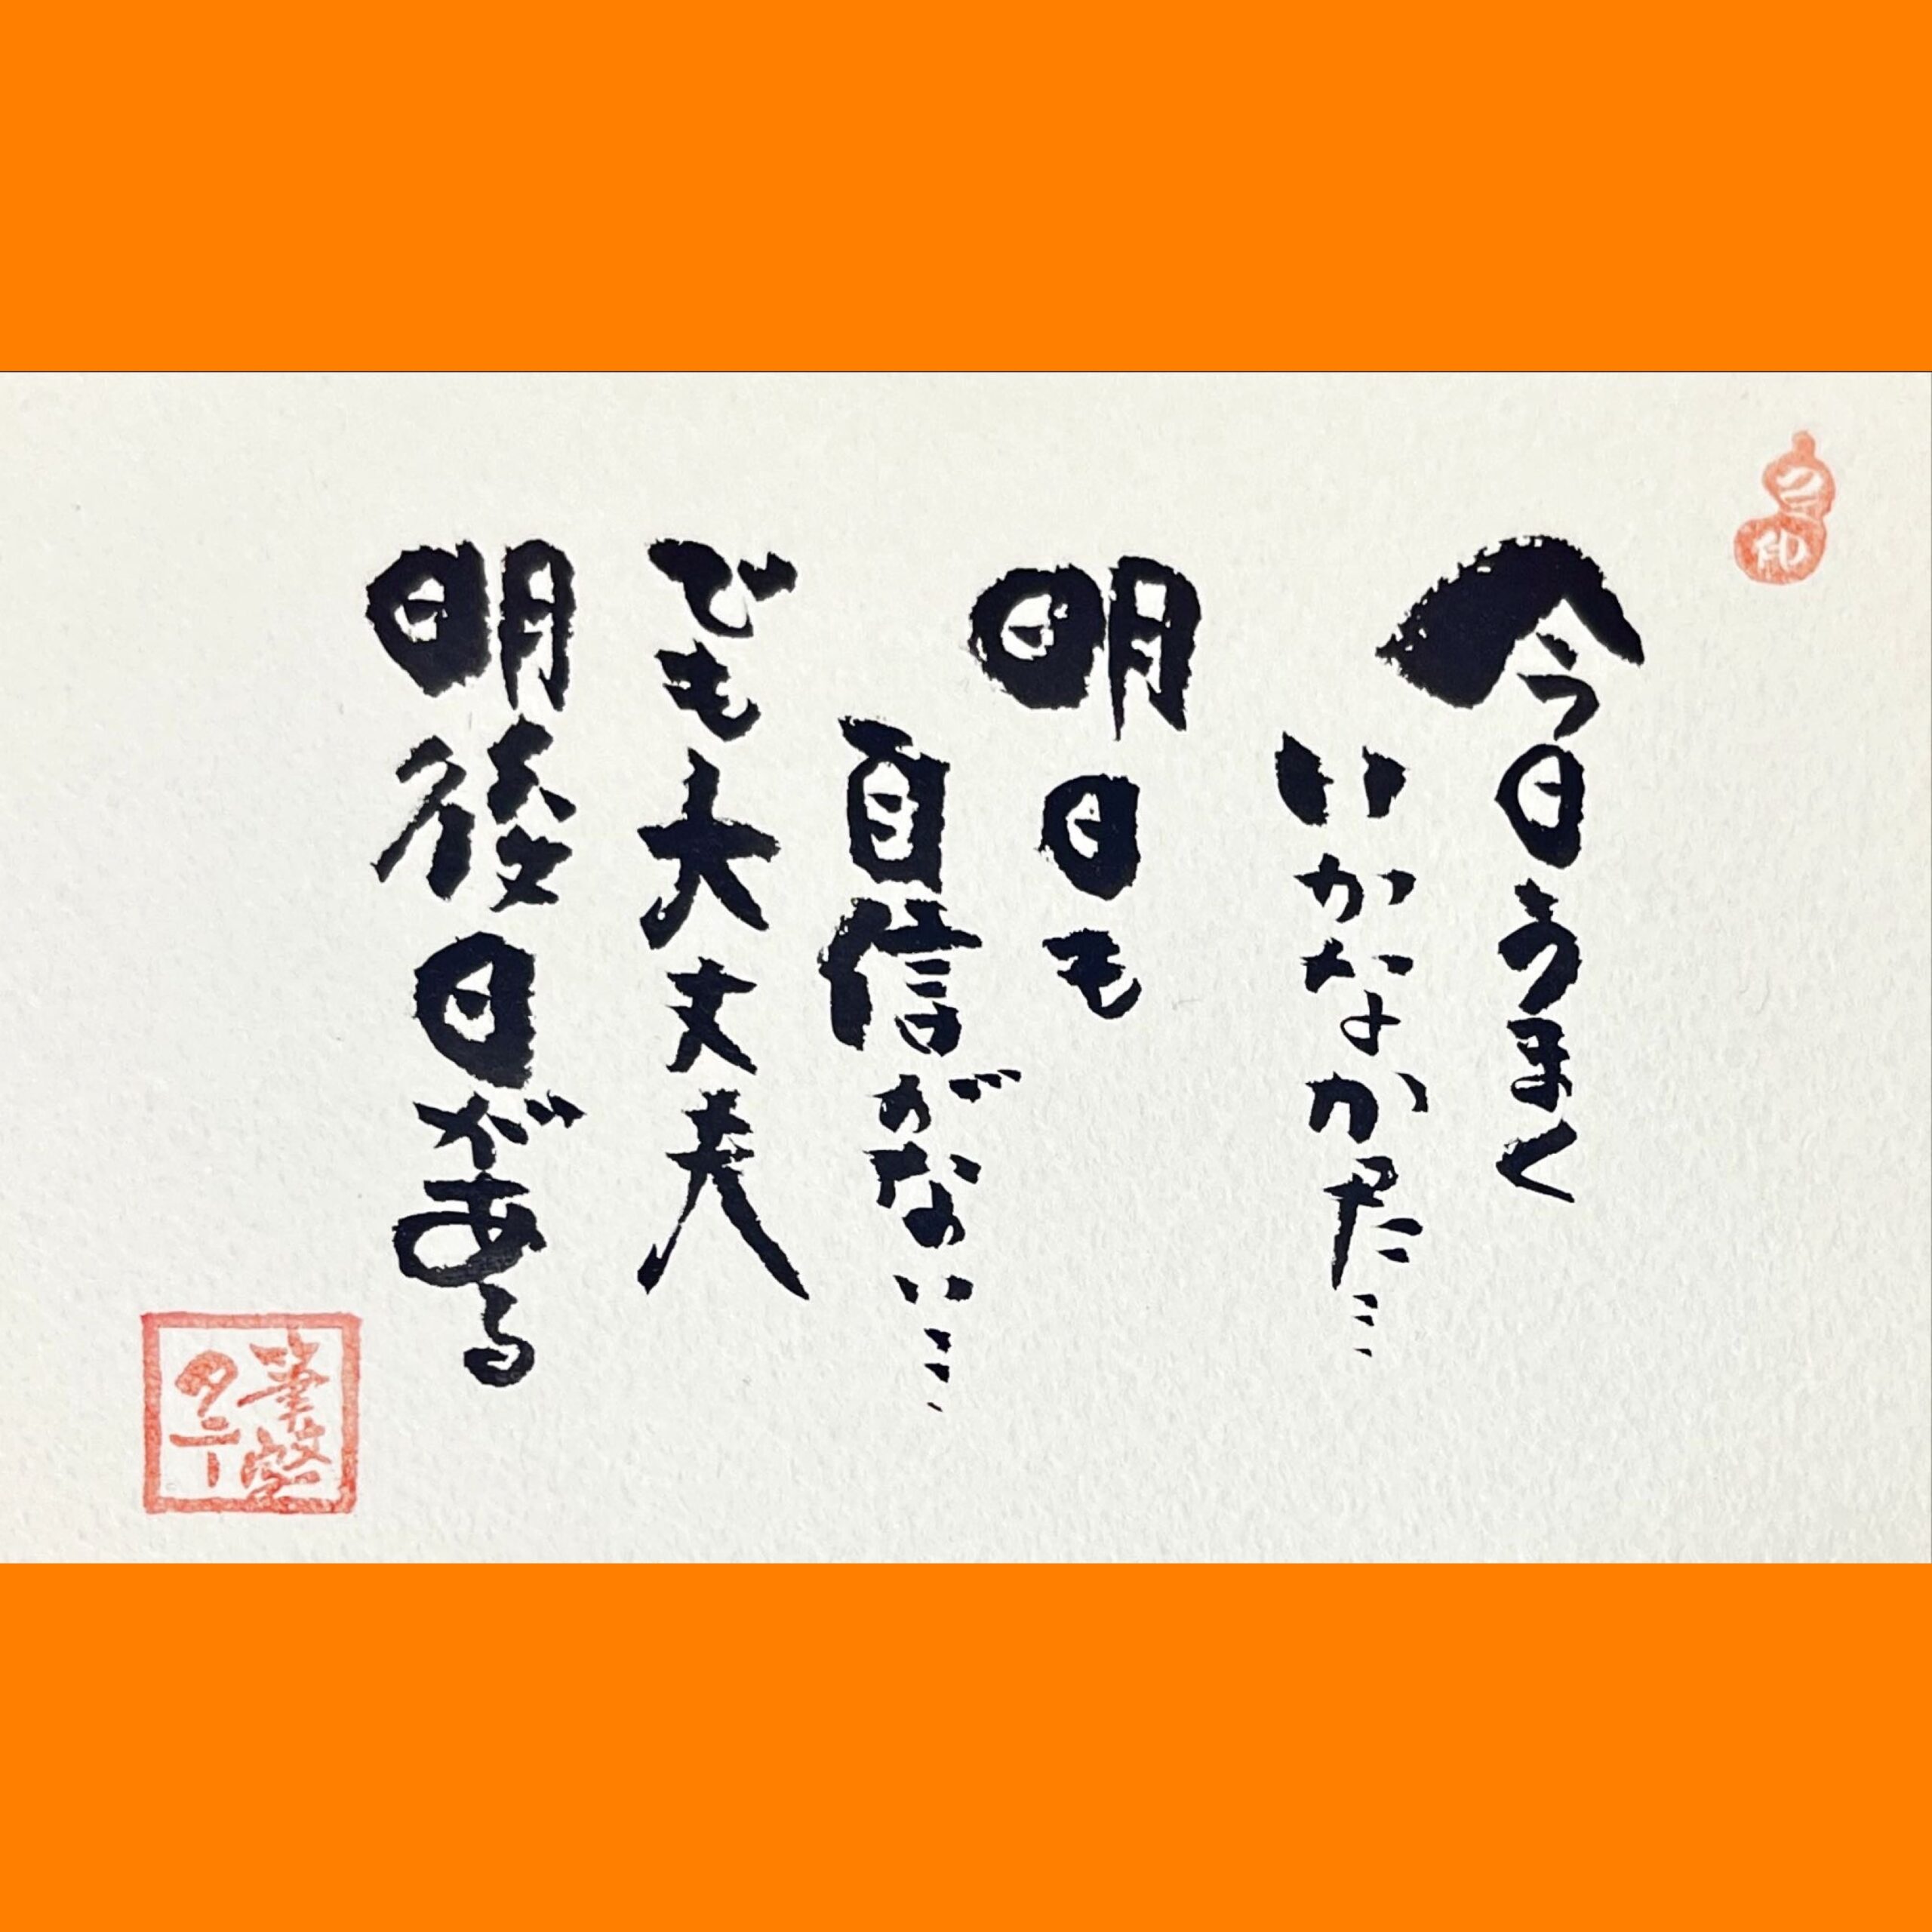 今日うまく
いかなかった…
明日も
自信がない…
でも大丈夫
明後日がある